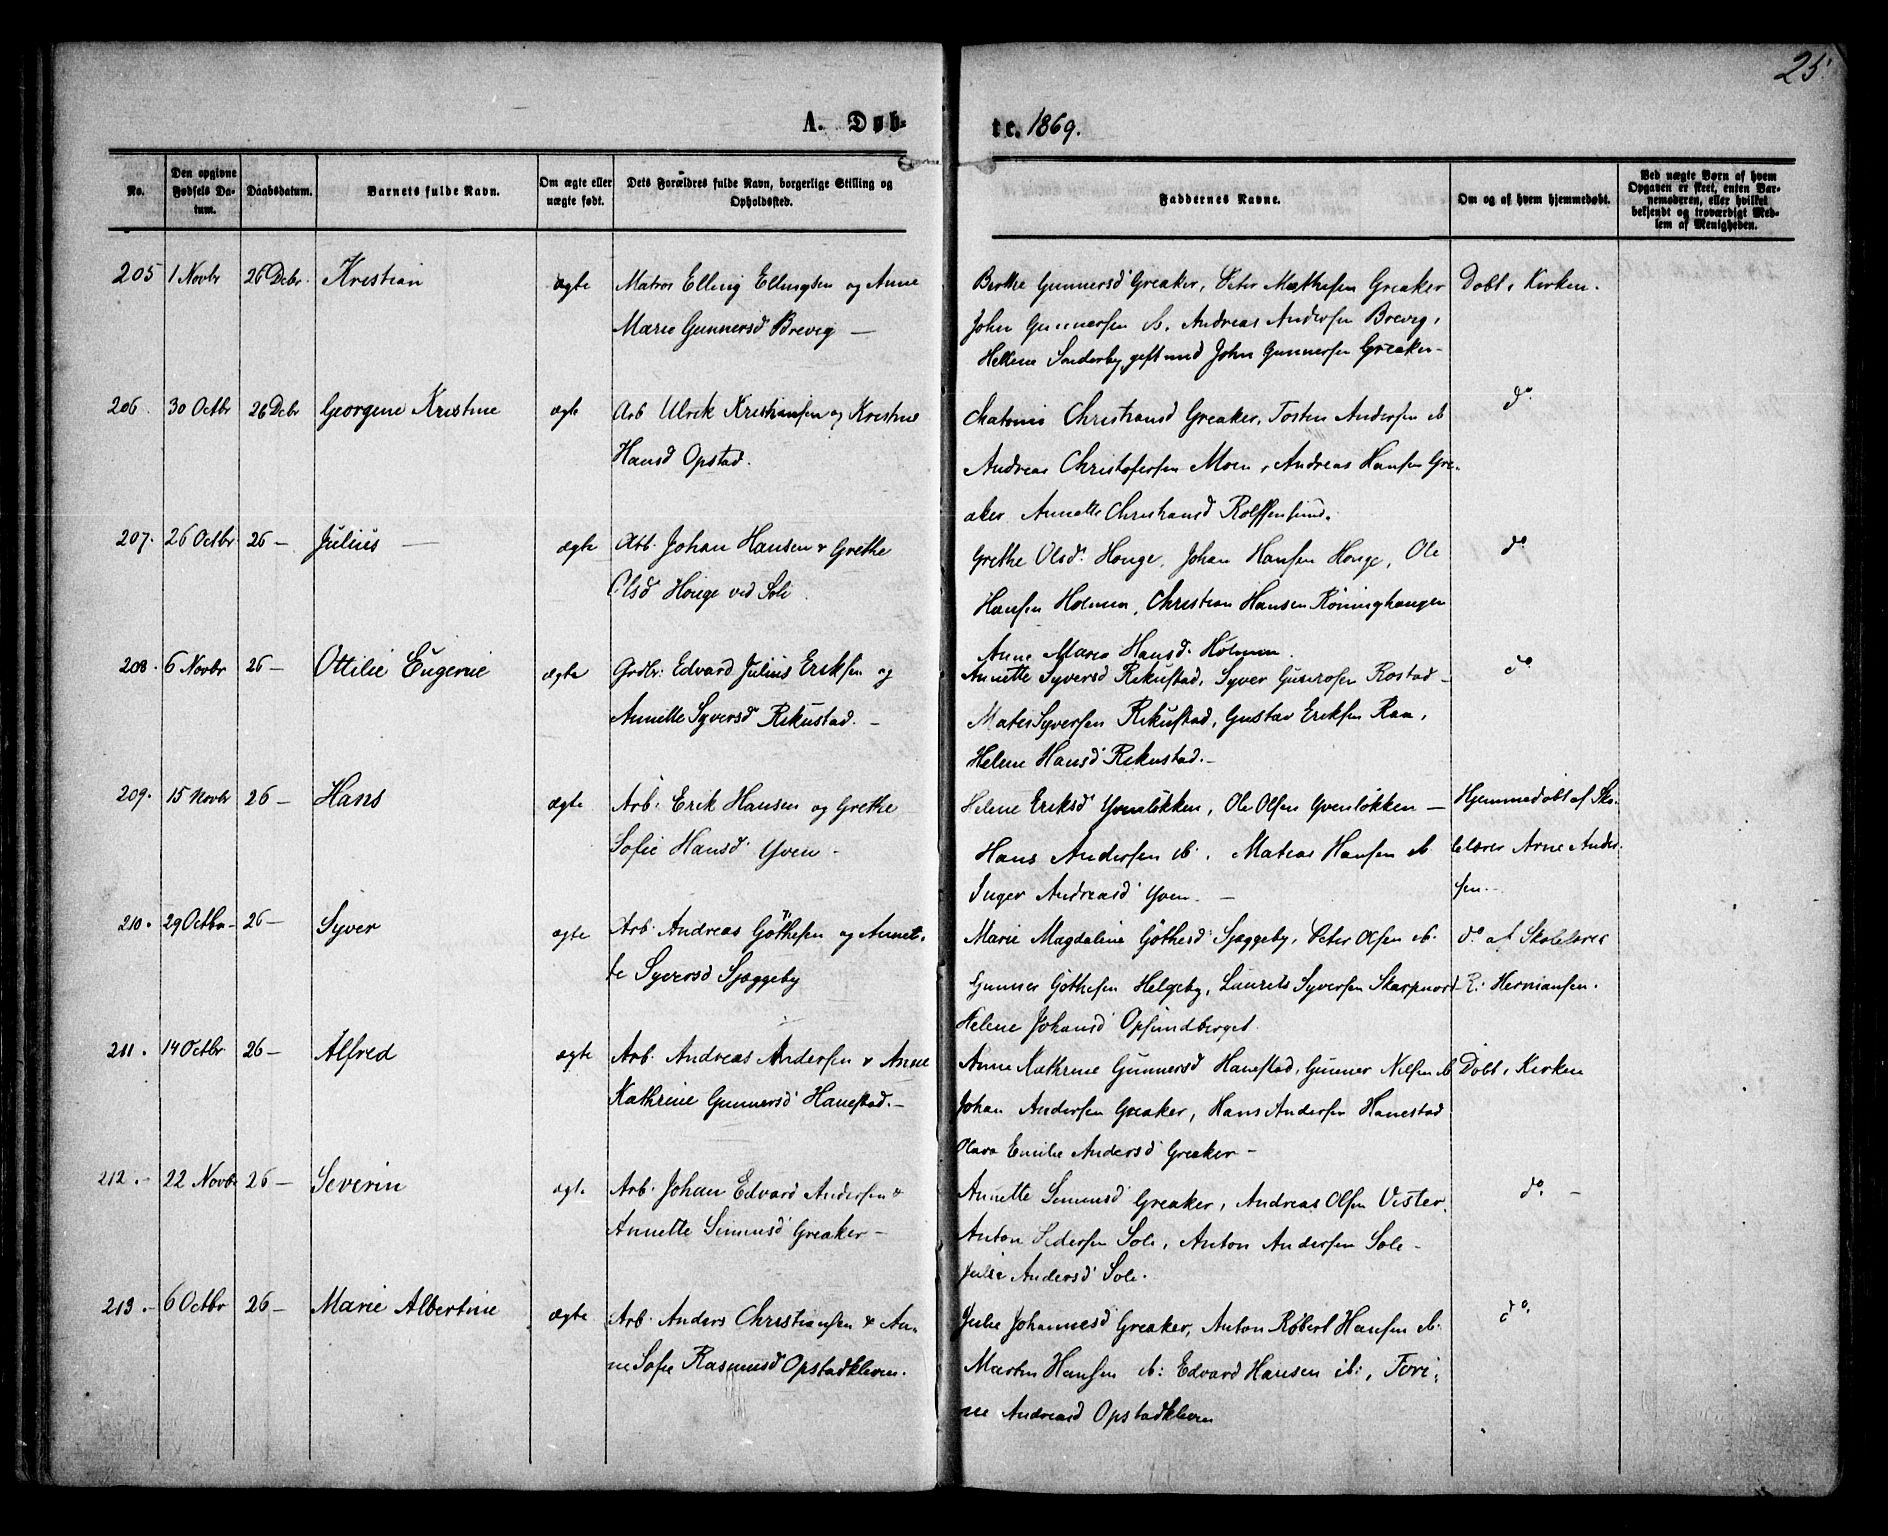 25.
A. Døb-
te. 1869.
No.
Den opgivne
Fødsels Da-
tum.
Daabsdatum.
Barnets fulde Navn.
Om ægte eller
uægte født.
Dets Forældres fulde Navn, borgerlige Stilling og
Opholdssted.
Faddernes Navne.
Om og af hvem hjemmedøbt.
Ved uægte Børn af hvem
Opgaven er skeet, enten Bar-
nemoderen, eller hvilket
bekjendt og troværdigt Med-
lem af Menigheden.
205 1 Novbr 26 Debr. Kristian ægte Matros Elling Ellingsen og Anne
Marie Gunnersd Brevig —
Berthe Gunnersd Greaker, Peter Mathesen Greaker
John Gunnersen ib. Andreas Andersen Brevig,
Hellene Sonderby gift med John Gunnersen Greaker -
Døbt i Kirken.
206. 30 Octbr 26 Debr Georgine Kristine ægte Arb Ulrik Kristiansen og Kristine
Hansd Opstad.
Christiansd Greaker, Tosten Andersen ib
Andreas Christofersen Moen, Andreas Hansen Gre-
aker Annette Christiansd Rolfsensund.
do.
207. 26 Octbr 26 — Julius — ægte Arb. Johan Hansen & Grethe
Olsd Houge ved Soli.
Grethe Olsd. Houge, Johan Hansen Houge, Ole
Hansen Holmen, Christian Hansen Röninghaugen
Anne Marie Hansd. Holmen.
do
208. 6 Novbr 26 — Ottilie Eugenie ægte Grdbr: Edvard Julius Eriksen og
Annette Syversd Rekustad. —
Annette Syversd Rekustad, Syver Rostad —
Syversen Rekustad, Gustav Eriksen Raa,
Helene Hansd Rekustad. —
do.
209. 15 Novbr 26 — Hans ægte Arb: Erik Hansen og Grethe
Sofie Hansd Yven —
Helene Eriksd Yvenløkken, Ole Olsen Yvenløkken —
Hans Andersen ib, Matias Hansen ib
Inger Andreasd Yven. —
Hjemmedøbt af Sko-
lelærer Arne Ander-
sen. —
210. 29 Octbr — 26 — Syver ægte Arb. Andreas Göthesen og Annet-
te Syversd Sjæggeby
Marie Magdalene Göthesd Sjæggeby, Peter Olsen ib.
Gunner Göthesen Helgeby, Laurits Syversen Skarpnord
Helene Johansd Opsundberget.
do. af Skolelærer
R. Hermansen.
211. 14 Octbr 26 — Alfred ægte Arb. Andreas Andersen & Anne
Kathrine Gunnersd Hanestad. —
Anne Kathrine Gunnersd Hanestad, Gunner Nilsen ib
Johan Andersen Greaker, Hans Andersen Hanestad
Olava Emilie Andersd Greaker —
Døbt i Kirken
212. — 22 Novbr 26 — Severin ægte Arb. Johan Edvard Andersen &
Annette Simensd Greaker —
Annette Simensd Greaker, Andreas Olsen Vister,
Anton Pedersen Sole, Anton Andersen Sole —
Julie Andersd Sole.
do. —
213. — 6 Octbr 26 — Marie Albertine ægte Arb. Anders Christiansen & An-
ne Sofie Rasmusd Opstadkleven.
Julie Johannesd Greaker, Anton Robert Hansen ib.
Martin Hansen ib: Edvard Hansen ib:, Tori-
ne Andreasd Opstadkleven
do.